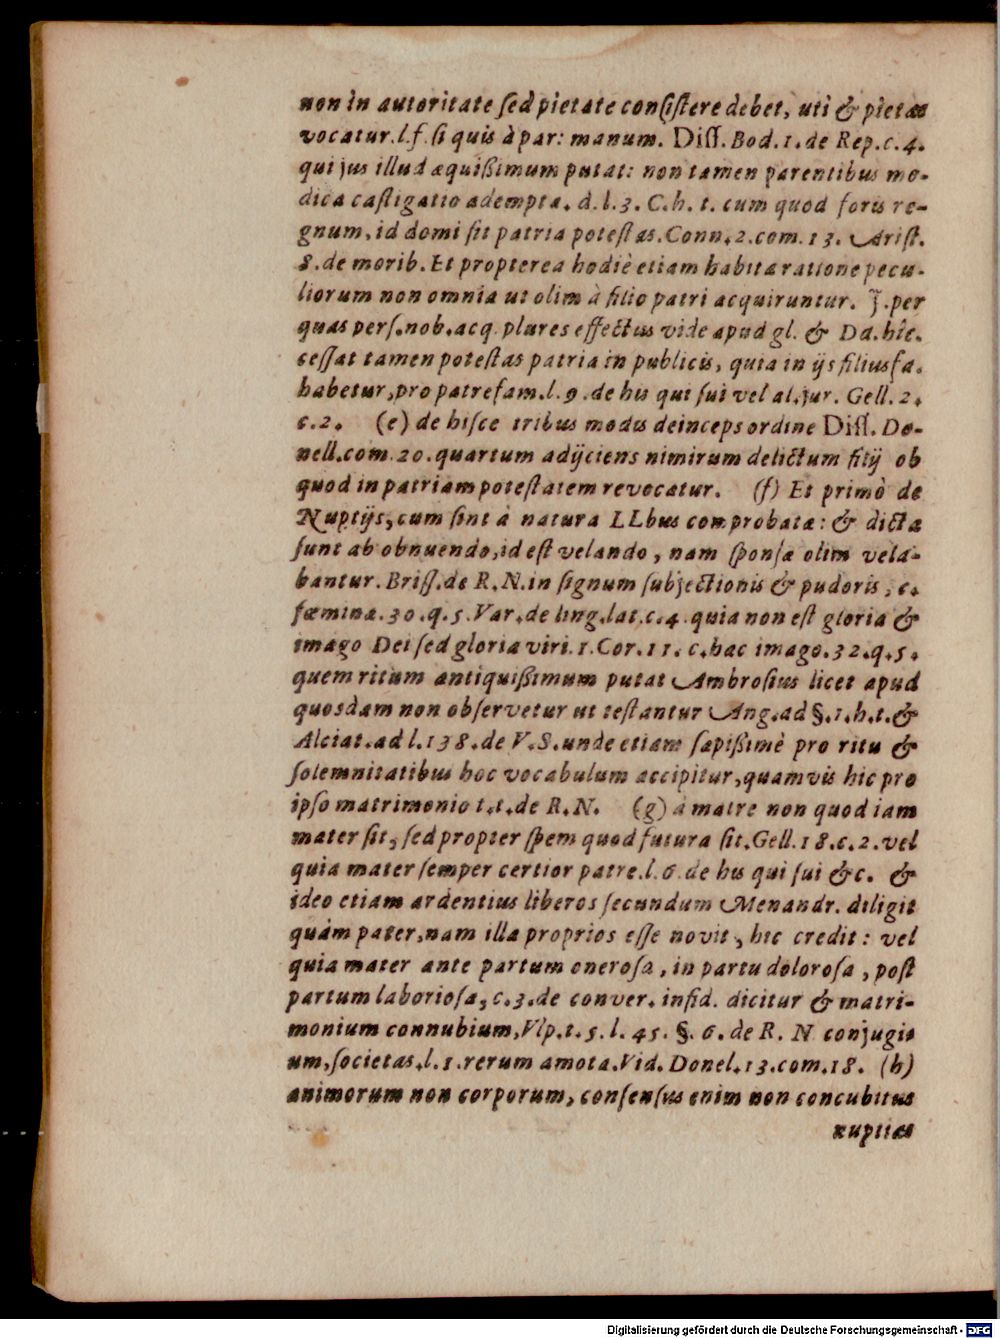 non in autoritate sed pietate consistere debet, uti & pietas
vocatur.l.f.si quis à par: manum. Diss. Bod.1.de Rep.c.4.
qui jus illud æquißimum putat: non tamen parentibus mo-
dica castigatio adempta. d.l.3. C.h. t. cum quod foris re-
gnum, id domi sit patria potestas.Conn.2.com.13. Arist.
8.de morib. Et propterea hodiè etiam habita ratione pecu-
liorum non omnia ut olim à filio patri acquiruntur. J.per
quas pers.nob.acq. plures effectus vide apud gl. & Da.hîc.
cessat tamen potestas patria in publicis, quia in ijs filiusfa.
habetur, pro patrefam.l.9.de his qui sui vel al.jur. Gell.2.
c.2. (e) de hisce tribus modis deinceps ordine Diss. Do-
nell.com.20.quartum adijciens nimirum delictum filij ob
quod in patriam potestatem revocatur. (f) Et primò de
Nuptijs, cum sint à natura LLbus comprobatæ: & dictæ
sunt ab obnuendo, id est velando, nam sponsæ olim vela-
bantur. Briss.de R.N.in signum subjectionis & pudoris, c.
fœmina.30.q.5.Var.de ling.lat.c.4.quia non est gloria &
imago Dei sed gloria viri.1.Cor.11. c.hac imago.32.q.5.
quem ritum antiquißimum putat Ambrosius licet apud
quosdam non observetur ut testantur Ang.ad §.1.h.t.&
Alciat.ad l.138.de V.S.unde etiam sæpißimè pro ritu &
solemnitatibus hoc vocabulum accipitur, quamvis hic pro
ipso matrimonio t.t.de R.N. (g) à matre non quod iam
mater sit, sed propter spem quod futura sit.Gell.18.c.2.vel
quia mater semper certior patre.l.6.de his qui sui &c. &
ideo etiam ardentius liberos secundum Menandr. diligit
quàm pater, nam illa proprios esse novit, hic credit: vel
quia mater ante partum onerosa, in partu dolorosa, post
partum laboriosa, c.3.de conver. infid. dicitur & matri-
monium connubium, Vlp.t.5.l.45.§.6.de R. N conjugi
um, societas.l.1.rerum amota.Vid. Donel.13.com.18. (h)
animorum non corporum, consensus enim non concubitus
nuptias
Digitalisierung gefördert durch die Deutsche Forschungsgemeinschaft - DFG